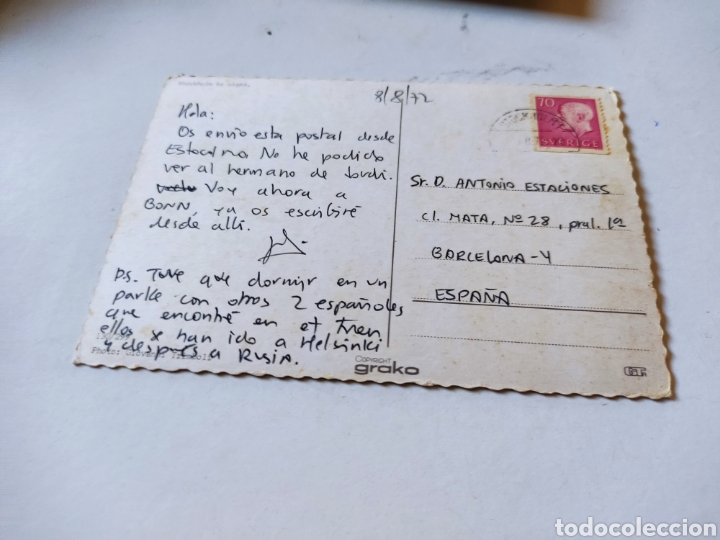 8/8/72
Hola:
Os envio esta postal desde
Estocolmo. No he podido
ver al hermano de Jordi.
Voy ahora a
BONN, ya os escribiré
desde alli.
P.s. Tuve que dormir en un
parke con otros 2 españoles
que encontré en el tren
ellos se han ido a Helsinki
y despues a Rusia.
70
SVERIGE
Sr. D. ANTONIO ESTACIONES
Cl. MATA, Nº 28, pral. 1ª
BARCELONA-4
ESPAÑA
COPYRIGHT
grako
todocoleccion